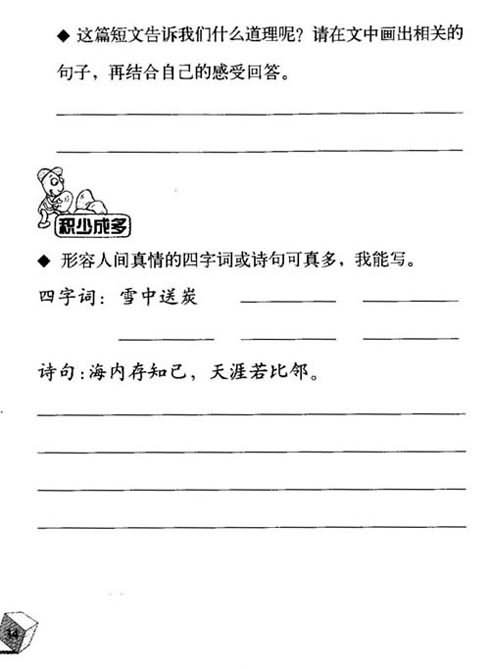 ◆ 这篇短文告诉我们什么道理呢？请在文中画出相关的
句子，再结合自己的感受回答。
积少成多
◆ 形容人间真情的四字词或诗句可真多，我能写。
四字词：雪中送炭
诗句：海内存知已，天涯若比邻。